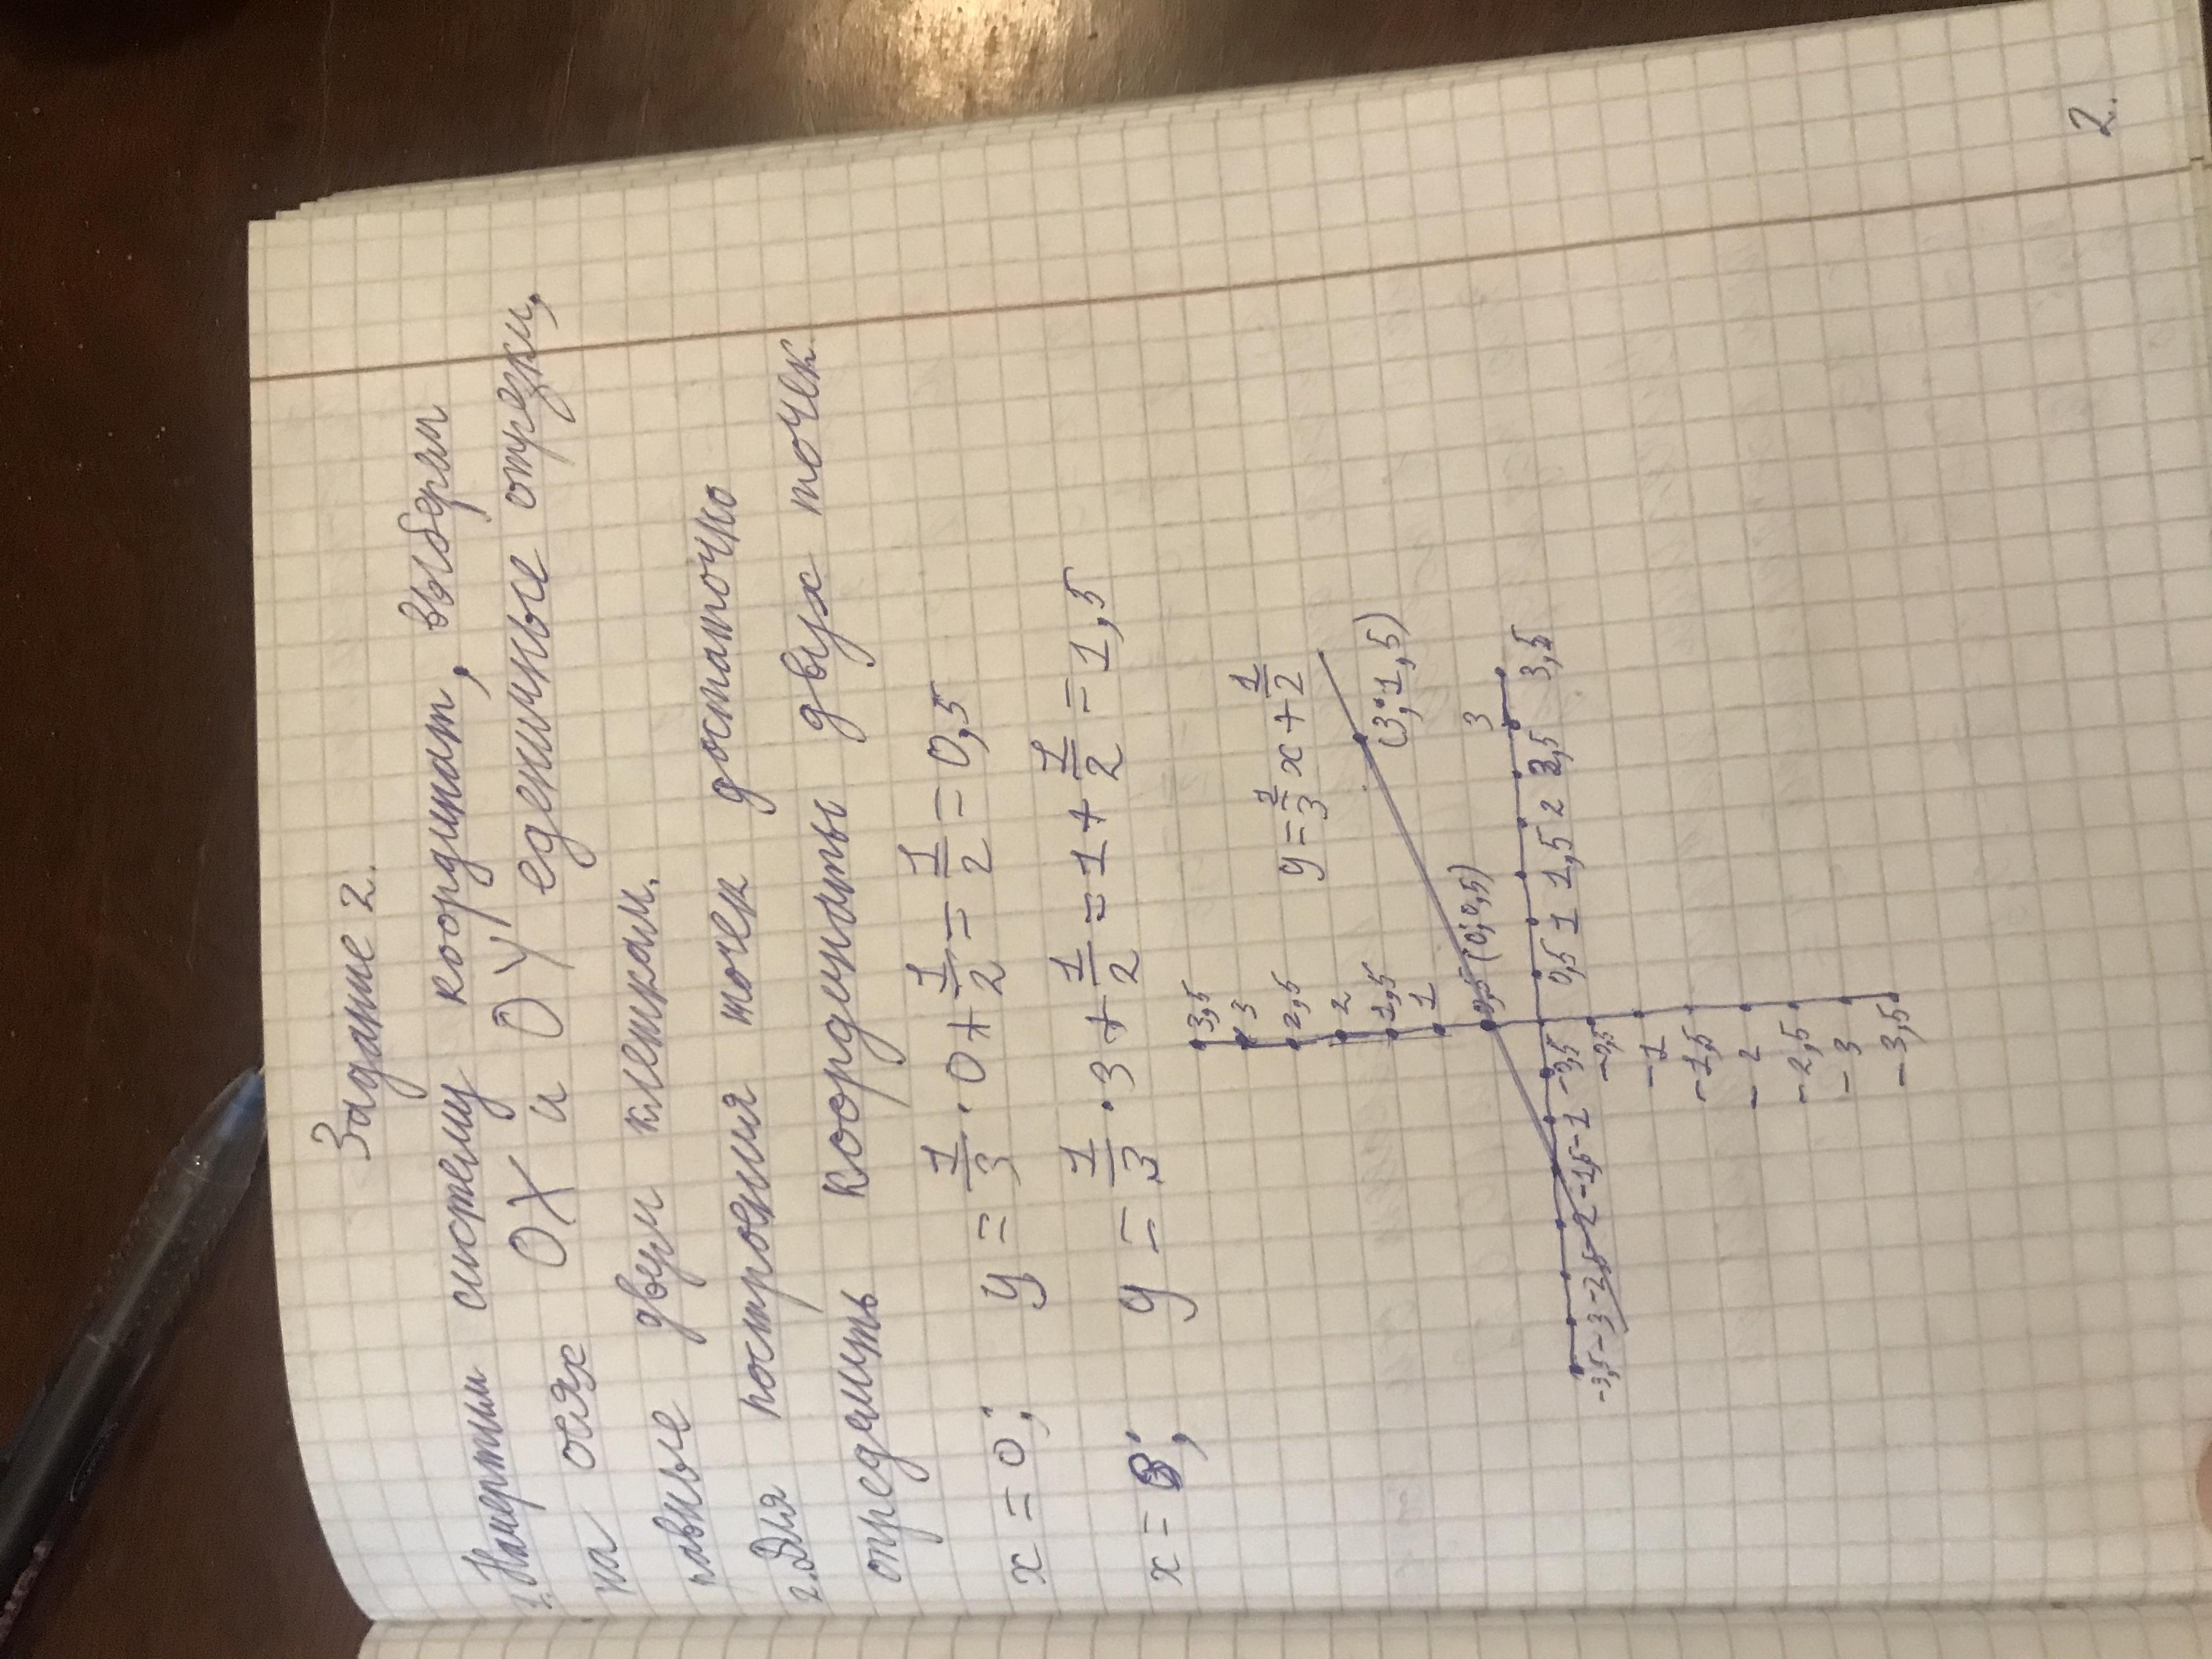 Задание 2.
1. Начертим систему координат, выберем
на осях OX и OY единичные отрезки,
равные двум клеткам.
2. Для построения точек достаточно
определить координаты двух точек.
x = 0; y = 1/3 · 0 + 1/2 = 1/2 = 0,5
x = 3; y = 1/3 · 3 + 1/2 = 1 + 1/2 = 1,5
3,5
3
y = 1/3 x + 1/2
2,5
2
1,5
(3; 1,5)
1
0,5 (0; 0,5)
3
-3,5 -3 -2,5 -2 -1,5 -1 -0,5 0,5 1 1,5 2 2,5 3,5
-0,5
-1
-1,5
-2
-2,5
-3
-3,5
2.